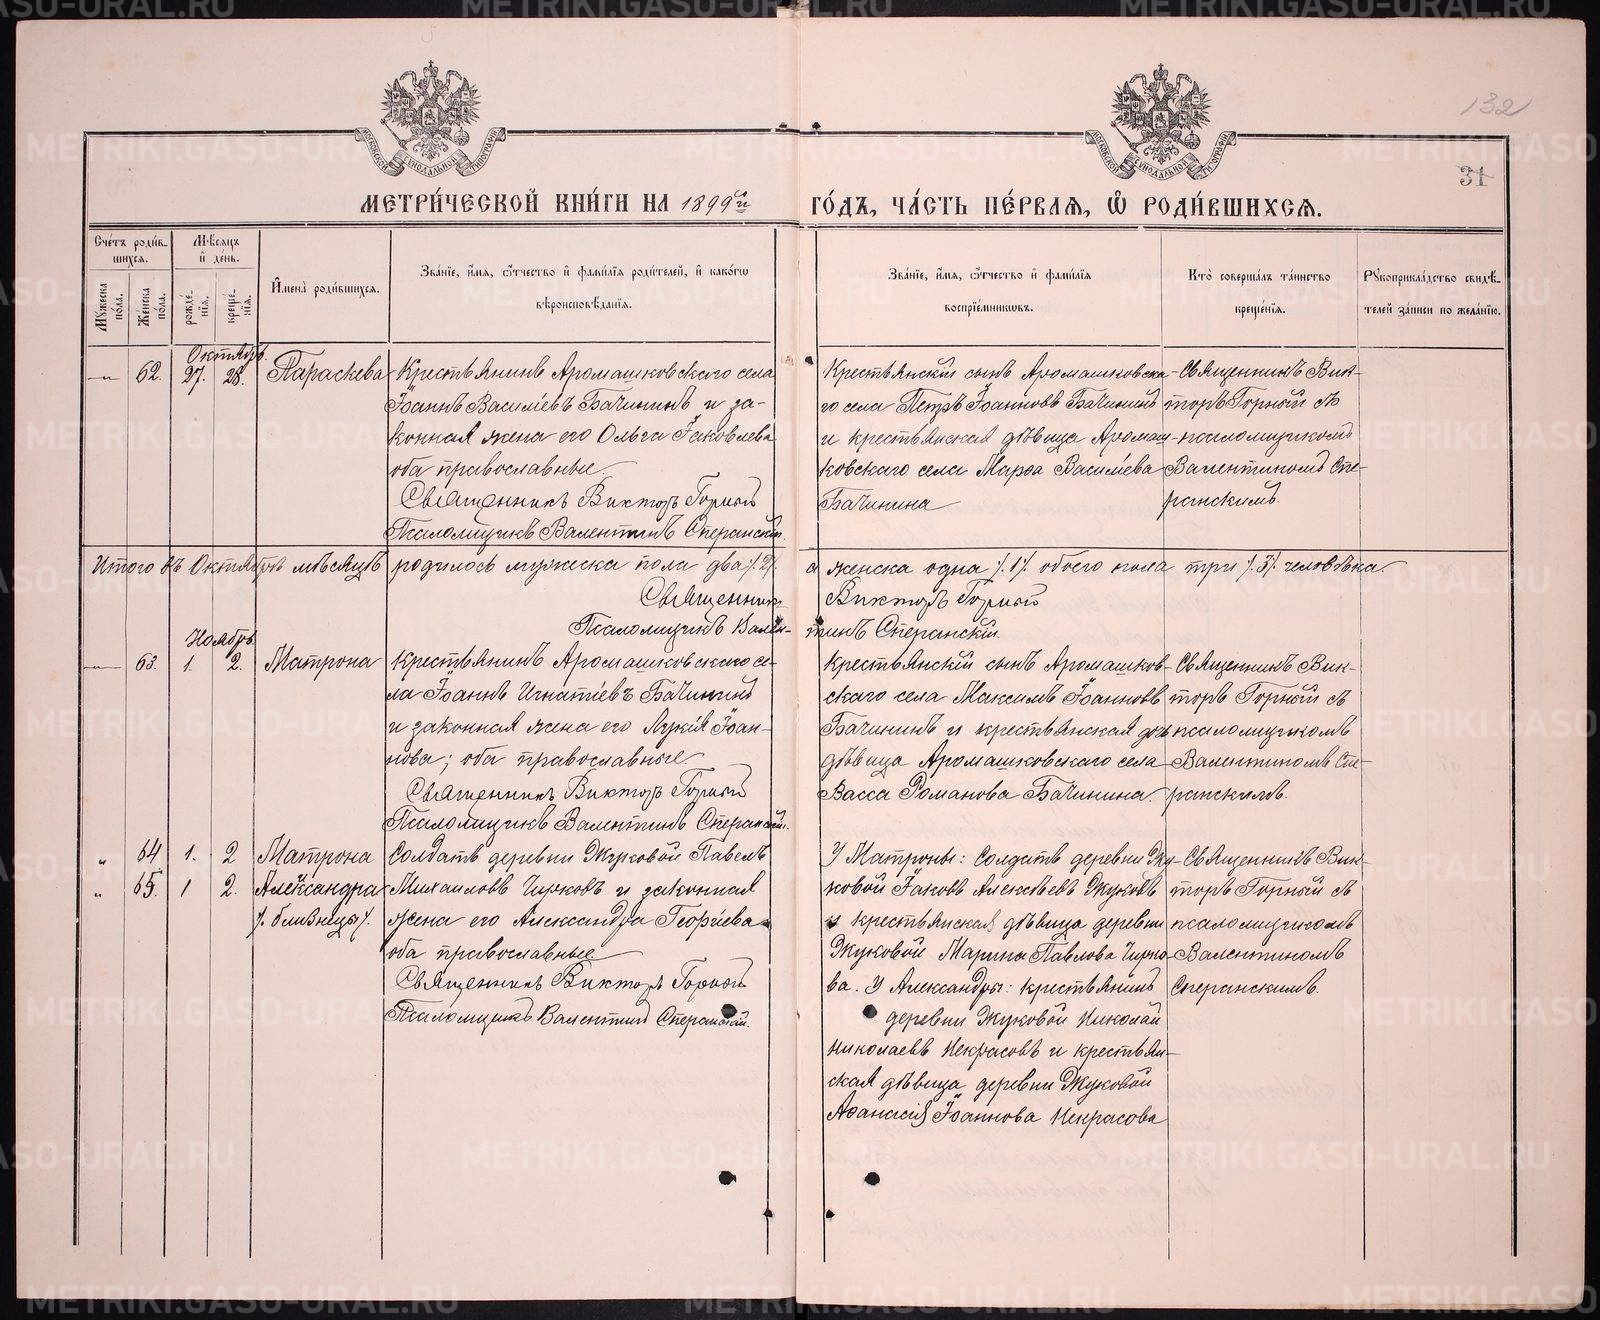 132
31
МОСКОВСКОЙ СѴНОДАЛЬНОЙ ТИПОГРАФІИ
МОСКОВСКОЙ СѴНОДАЛЬНОЙ ТИПОГРАФІИ
МЕТРИ́ЧЕСКОЙ КНИ́ГИ НА 1899й ГО́ДЪ, ЧА́СТЬ ПЕ́РВАЯ, Ѡ РОДИ́ВШИХСЯ.
Сче́тъ роди́в-
шихся.
Мѣ́сяцъ
и҆ де́нь.
Мꙋ́жеска по́ла.
Же́нска по́ла.
рожде́-
нїѧ.
креще́-
нїѧ.
И҆мена̀ роди́вшихся.
Зва́нїе, и҆́мя, ѻ҆́тчество и҆ фами́лїѧ роди́телей, и҆ како́гѡ
вѣроисповѣ́данїѧ.
Зва́нїе, и҆́мя, ѻ҆́тчество и҆ фами́лїѧ
воспрїе́мникѡвъ.
Кто̀ соверша́лъ та́инство
креще́нїѧ.
Рꙋкоприкла́дство свидѣ́-
телей за́писи по жела́нїю.
Октябрь.
—"— 62. 27. 28. Параскева
Крестьянинъ Аромашковскаго села
Іоаннъ Василіевъ Бачининъ и за-
конная жена его Ольга Іаковлева
оба православные
Священникъ Викторъ Горный
Псаломщикъ Валентинъ Сперанскій.
Крестьянскій сынъ Аромашковска-
го села Петръ Іоанновъ Бачининъ
и крестьянская дѣвица Аромаш-
ковскаго села Марѳа Василіева
Бачинина
Священникъ Вик-
торъ Горный съ
псаломщикомъ
Валентиномъ Спе-
ранскимъ.
Итого въ Октябрѣ мѣсяцѣ родилось мужеска пола два /.2/. а женска одна /.1/. обоего пола три /.3/. человѣка.
Священникъ Викторъ Горный
Псаломщикъ Вален-тинъ Сперанскій.
Ноябрь
—"— 63. 1. 2. Матрона
Крестьянинъ Аромашковскаго се-
ла Іоаннъ Игнатіевъ Бачининъ
и законная жена его Лукія Іоан-
нова; оба православные
Священникъ Викторъ Горный
Псаломщикъ Валентинъ Сперанскій.
Крестьянскій сынъ Аромашков-
скаго села Максимъ Іоанновъ
Бачининъ и крестьянская дѣ
дѣвица Аромашковскаго села
Васса Романова Бачинина.
Священникъ Вик-
торъ Горный съ
псаломщикомъ
Валентиномъ Спе-
ранскимъ.
" 64 1. 2 Матрона
" 65. 1 2. Александра
/. близнецы /.
Солдатъ деревни Жуковой Павелъ
Михаиловъ Чирковъ и законная
жена его Александра Георгіева
оба православные
Священникъ Викторъ Горный
Псаломщикъ Валентинъ Сперанскій.
У Матроны: солдатъ деревни Жу-
ковой Іаковъ Алексѣевъ Жуковъ
и крестьянская дѣвица деревни
Жуковой Марина Павлова Чирко-
ва. У Александры: крестьянинъ
деревни Жуковой Николай
Николаевъ Некрасовъ и крестьян-
ская дѣвица деревни Жуковой
Аѳанасія Іоаннова Некрасова
Священникъ Вик-
торъ Горный съ
псаломщикомъ
Валентиномъ
Сперанскимъ.
METRIKI.GASO-URAL.RU